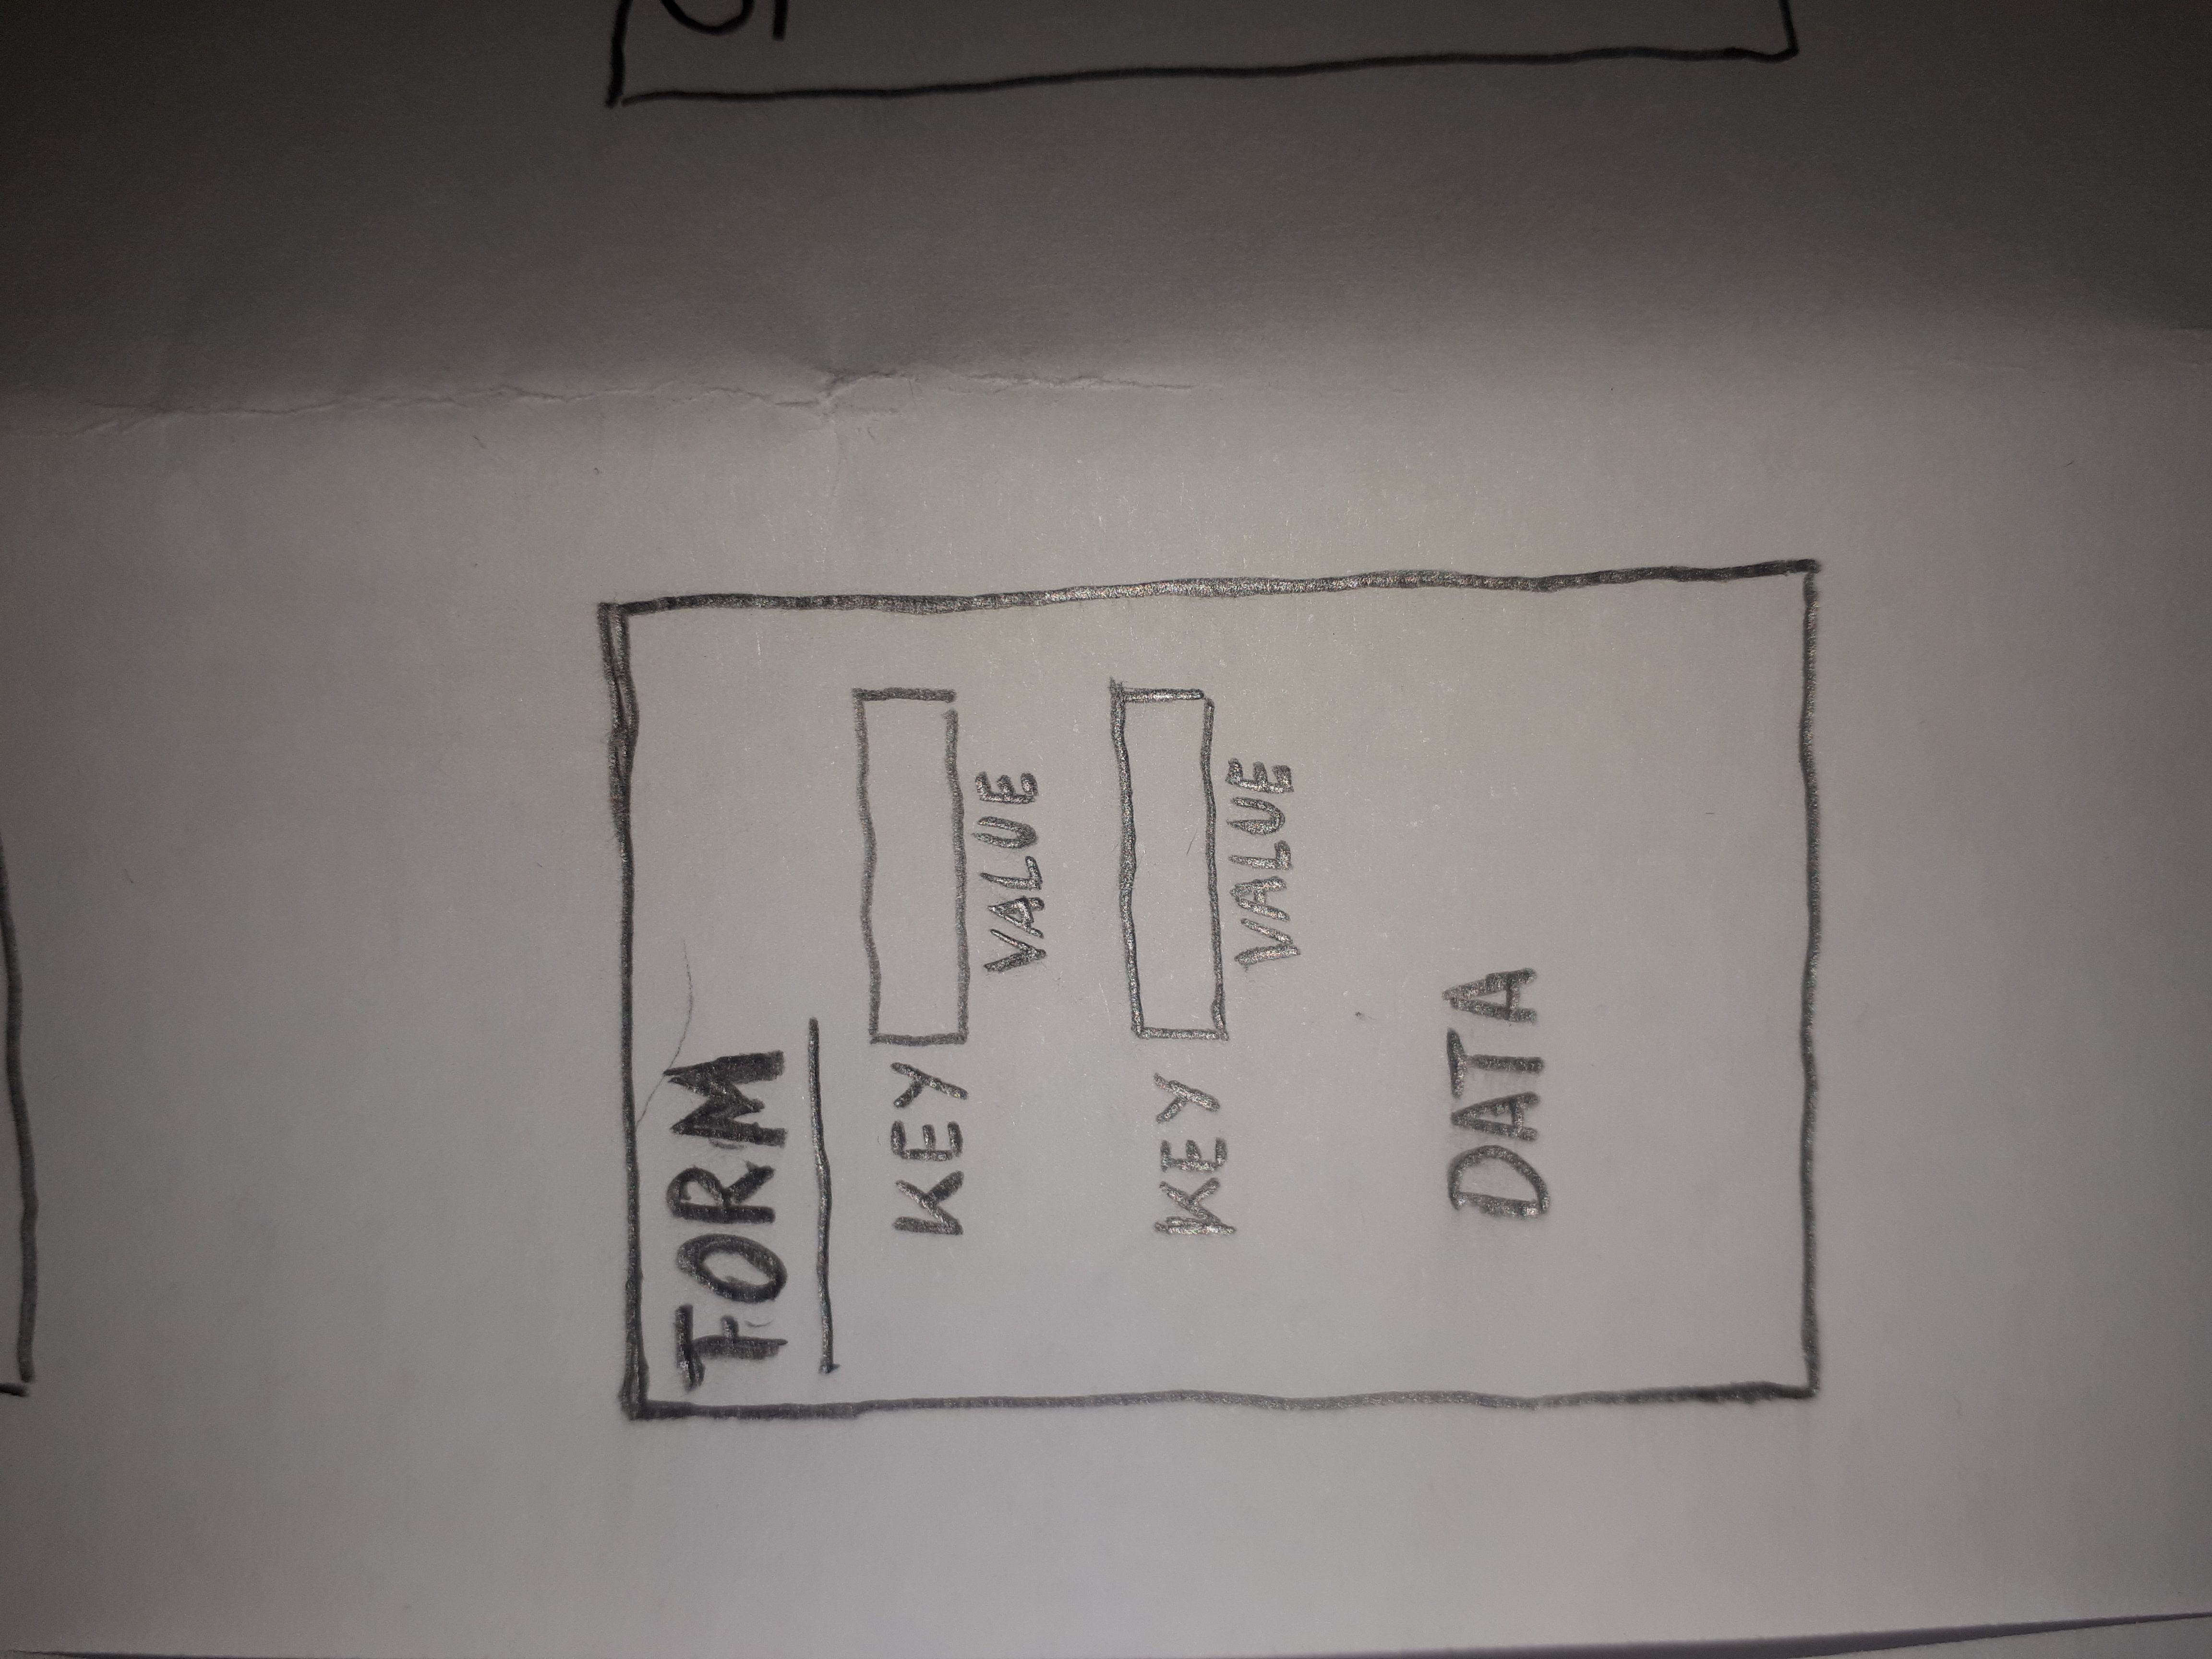 FORM
KEY
VALUE
KEY
VALUE
DATA